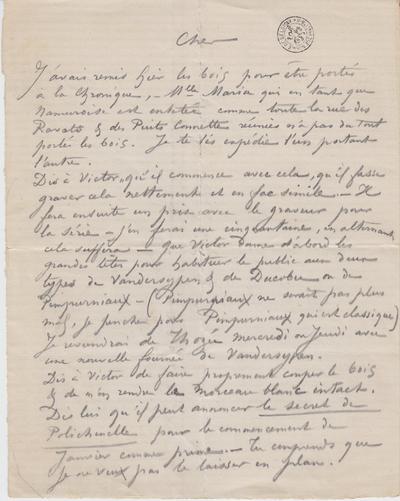 Cher
J'avais remis hier les bois pour être portés
à la Chronique, Mlle Maria qui en tant que
Namuroise est entêtée comme toute la rue des
Ravets & des Petits réunies n'a pas du tout
porté les bois. Je te les expédie l'un portant
l'autre.
Dis à Victor, qu'il commence avec cela, qu'il fasse
graver cela nettement et en fac simile - Il
fera ensuite un prix avec le graveur pour
la série - j'en ferai une cinquantaine, en alternant
cela suffira - que Victor donne d'abord les
grandes têtes pour habituer le public aux deux
types de Vandersypen, & de Ducobu ou de
Pimpurniaux - (Pimpurgniaux ne serait pas plus
mal, je penche pour Pimpurniaux qui est classique)
Je reviendrai de Thozée mercredi ou Jeudi avec
une nouvelle fournée de Vandersypen.
Dis à Victor de faire proprement couper le bois
& de m'en rendre le morceau blanc intact.
Dis lui qu'il peut annoncer le secret de
Polichinelle pour le commencement de
Janvier comme prime. - Tu comprends que
je ne veux pas le laisser en plan.